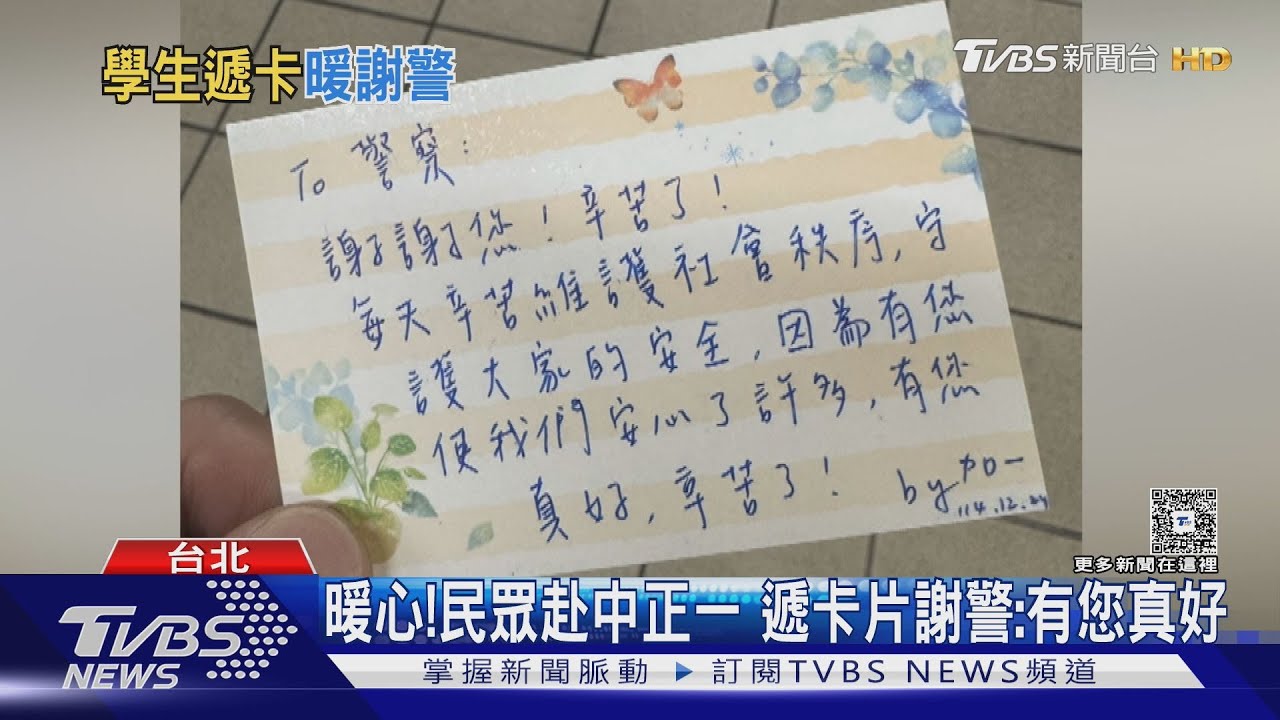 學生遞卡暖謝警
TVBS新聞台 HD
To 警察:
謝謝您!辛苦了!
每天辛苦維護社會秩序,守
護大家的安全,因為有您
使我們安心了許多,有您
真好,辛苦了!
by 加一
114.12.24
更多新聞在這裡
台北
暖心!民眾赴中正一 遞卡片謝警:有您真好
TVBS
NEWS
掌握新聞脈動 ▶ 訂閱TVBS NEWS頻道